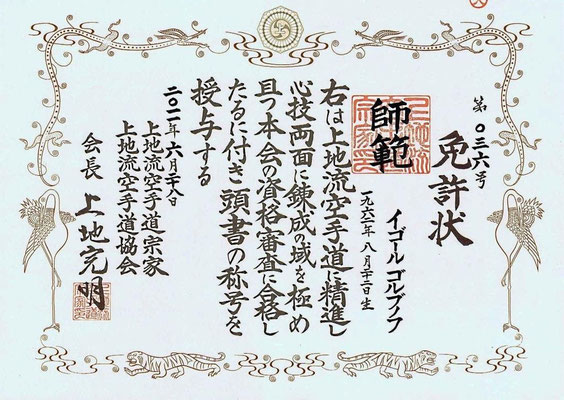 第〇三六号
免許状
師範
イゴール ゴルブノフ
一九六二年八月二十二日生
右は上地流空手道に精進し
心技両面に錬成の域を極め
且つ本会の資格審査に合格し
たるに付き頭書の称号を
授与する
二〇一一年六月二十八日
上地流空手道宗家
上地流空手道協会
会長 上地完明